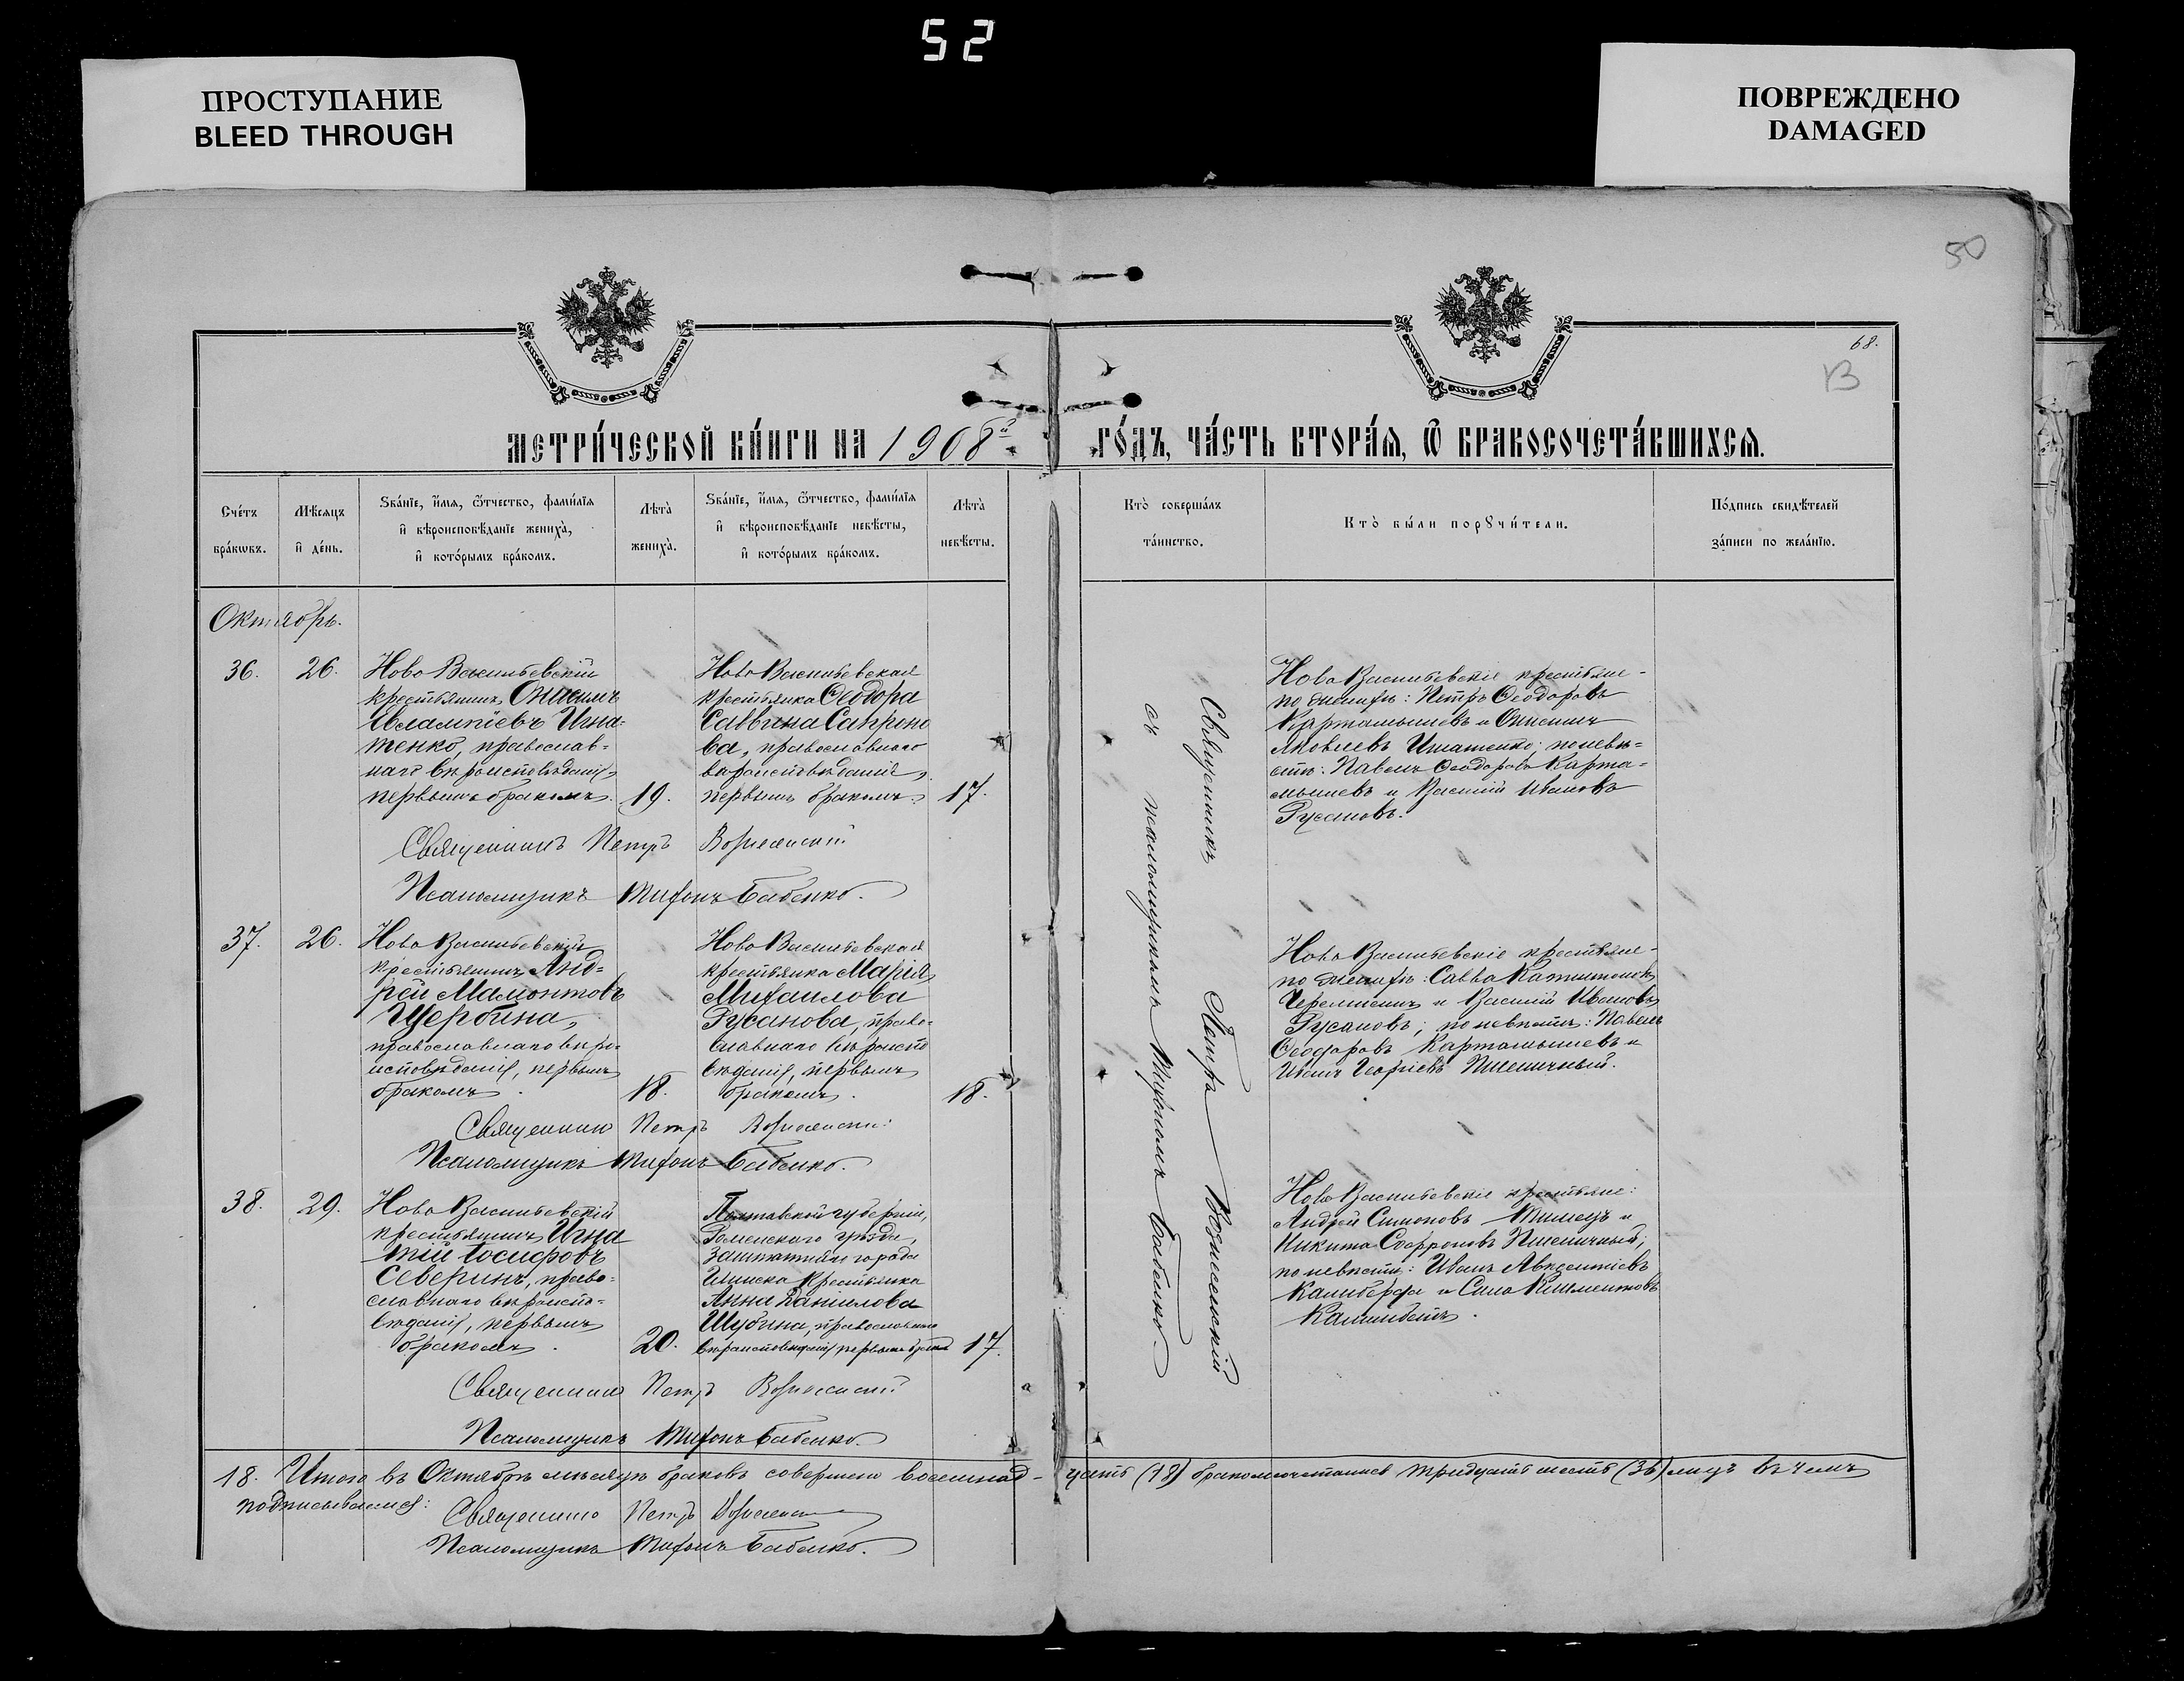 52
ПРОСТУПАНИЕ
BLEED THROUGH
ПОВРЕЖДЕНО
DAMAGED
50
68.
В
МЕТРИ́ЧЕСКОЙ КНИ́ГИ НА 1908й
ГО́ДЪ, ЧА́СТЬ ВТОРА́Я, Ѿ БРАКОСОЧЕТА́ВШИХСЯ.
Сче́тъ
бра́кѡвъ.
Мѣ́сяцъ
и де́нь.
Ѕва́нїе, и́мя, ѻ́тчество, фами́лїя
и вѣроисповѣ́данїе жениха̀,
и кото́рымъ бра́комъ.
Лѣта̀
жениха̀.
Ѕва́нїе, и́мя, ѻ́тчество, фами́лїя
и вѣроисповѣ́данїе невѣ́сты,
и кото́рымъ бра́комъ.
Лѣта̀
невѣ́сты.
Кто̀ соверша́лъ
та́инство.
Кто̀ бы́ли порꙋчи́тели.
По́дпись свидѣ́телей
за́писи по жела́нїю.
Октябрь.
36.
26.
Ново Васильевскій
крестьянинъ Онисимъ
Евлампіевъ Игна-
тенко, православ-
наго вѣроисповѣданія,
первымъ бракомъ.
19.
Ново Васильевская
крестьянка Ѳеодора
Саввина Сапроно
ва, православнаго
вѣроисповѣданія,
первымъ бракомъ.
17.
Ново Васильевскіе крестьяне-
по женихѣ: Петръ Ѳеодоровъ
Картамышевъ и Онисимъ
Яковлевъ Игнатенко; по невѣ-
стѣ: Павелъ Ѳеодоровъ Карта-
мышевъ и Василій Ивановъ
Русановъ.
Священникъ Петръ Вознесенскій
Псаломщикъ Тифонъ Бабенко.
37.
26.
Ново Васильевскій
крестьянинъ Анд-
рей Мамонтовъ
Щербина,
православнаго вѣро-
исповѣданія, первымъ
бракомъ.
18.
Ново Васильевская
крестьянка Марія
Михаилова
Русанова, право-
славнаго вѣроиспо
вѣданія, первымъ
бракомъ.
18.
Ново Васильевскіе крестьяне-
по женихѣ: Савва
и Василій Ивановъ
Русановъ; по невѣстѣ: Павелъ
Ѳеодоровъ Картамышевъ и
Иванъ Георгіевъ Пшеничный.
Священникъ Петръ Вознесенскій
Псаломщикъ Тифонъ Бабенко.
38.
29.
Ново Васильевскій
крестьянинъ Игна
тій Іосифовъ
Северинъ, право-
славнаго вѣроиспо-
вѣданія, первымъ
бракомъ.
20.
Полтавской губерніи,
Роменского уѣзда,
заштатнаго города
Глинска крестьянка
Анна Даніилова
Шубина, православнаго
вѣроисповѣданія, первымъ бракомъ
17.
Ново Васильевскіе крестьяне:
Андрей Симоновъ и
Никита Софроновъ Пшеничный;
по невѣстѣ: Иванъ Авксентіевъ
Калиберда и Сила Климентовъ
Священникъ Петръ Вознесенскій
Псаломщикъ Тифонъ Бабенко.
Священникъ Петръ Вознесенскій
съ псаломщикомъ Тифономъ Бабенко
18. Итого въ Октябрѣ мѣсяцѣ браковъ совершено восемнад-цать (18) бракосочеталось тридцать шесть (36) лицъ въ чемъ
подписываемся:
Священникъ Петръ Вознесенскій
Псаломщикъ Тифонъ Бабенко.